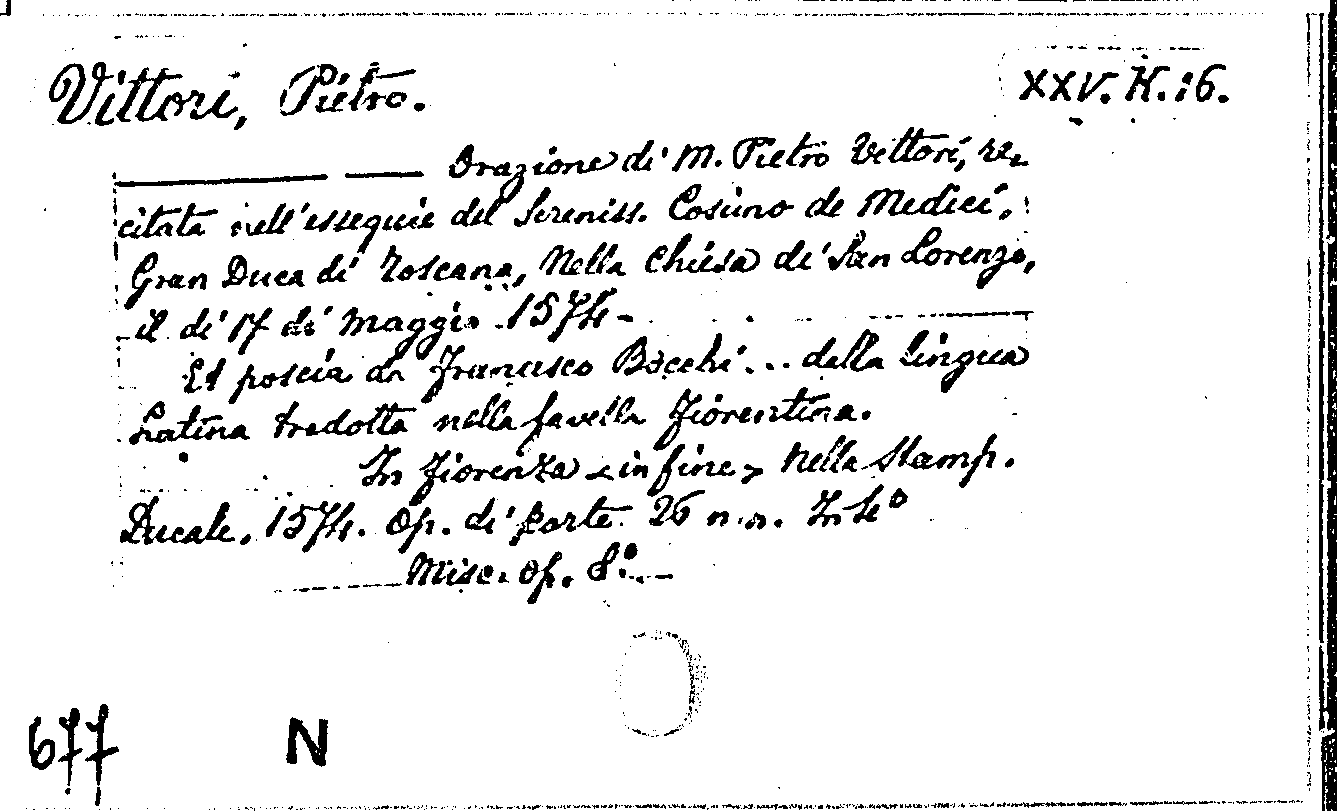 Vittori, Pietro.
XXV. K. 16.
Orazione di M. Pietro Vettori, re-
citata nell'essequie del Sereniss. Cosimo de Medici,
Gran Duca di Toscana, nella Chiesa di San Lorenzo,
il di 17 di Maggio 1574 -
Et poscia da Francesco Bocchi... dalla lingua
Latina tradotta nella favella fiorentina.
In fiorenza < in fine > nella Stamp.
Ducale, 1574. Op. di carte 26 n. n. In 4°
Misc. op. 8°.
677 N